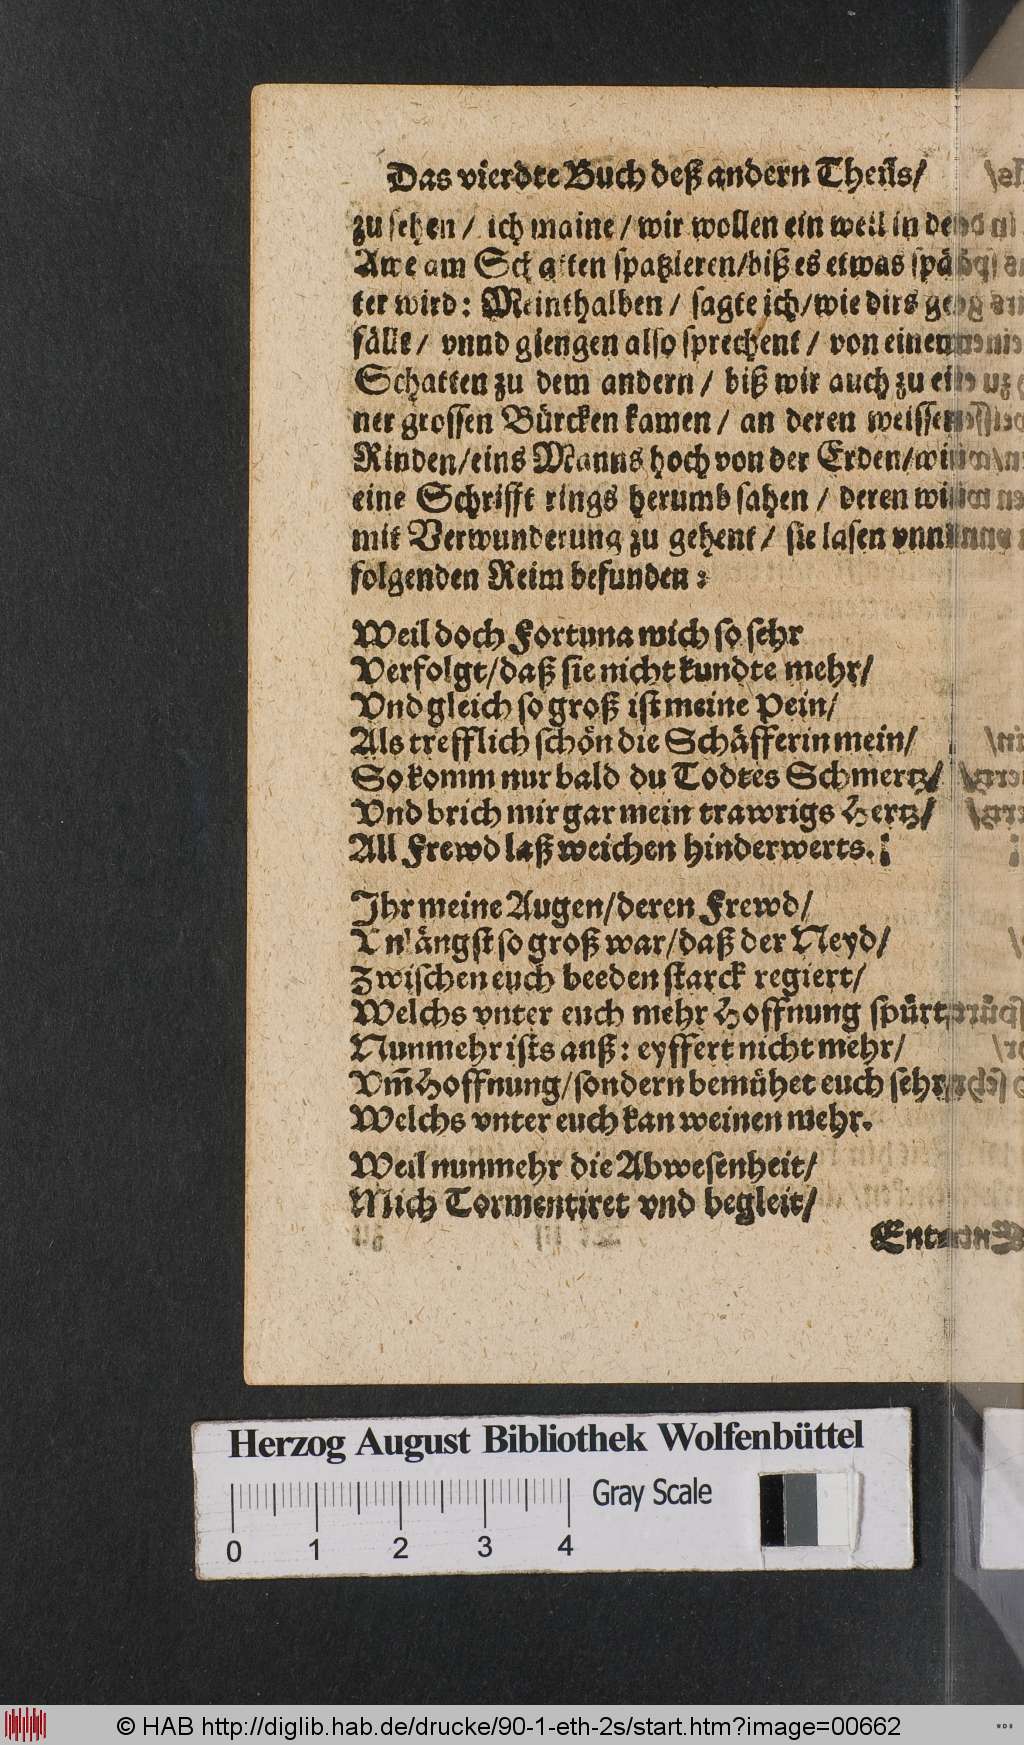 Das vierdte Buch deß andern Theils/
zu sehen / ich maine / wir wollen ein weil in der
Awe am Schatten spatzieren/biß es etwas spä-
ter wird: Meinthalben / sagte ich/wie dirs ge-
fällt / vnnd giengen also sprechent / von einem
Schatten zu dem andern / biß wir auch zu ei-
ner grossen Bürcken kamen / an deren weissen
Rinden/eins Manns hoch von der Erden/wir
eine Schrifft rings herumb sahen / deren wir
mit Verwunderung zu gehent / sie lasen vnnd
folgenden Reim befunden:
Weil doch Fortuna mich so sehr
Verfolgt/daß sie nicht kundte mehr/
Vnd gleich so groß ist meine Pein/
Als trefflich schön die Schäfferin mein/
So komm nur bald du Todtes Schmertz/
Vnd brich mir gar mein trawrigs Hertz/
All Frewd laß weichen hinderwerts.
Ihr meine Augen/deren Frewd/
Vn' ängst so groß war/daß der Neyd/
Zwischen euch beeden starck regiert/
Welchs vnter euch mehr Hoffnung spürt
Nunmehr ists auß: eyffert nicht mehr/
Vm̃ Hoffnung/sondern bemühet euch sehr
Welchs vnter euch kan weinen mehr.
Weil nunmehr die Abwesenheit/
Mich Tormentiret vnd begleit/
Herzog August Bibliothek Wolfenbüttel
Gray Scale
0 1 2 3 4
© HAB http://diglib.hab.de/drucke/90-1-eth-2s/start.htm?image=00662